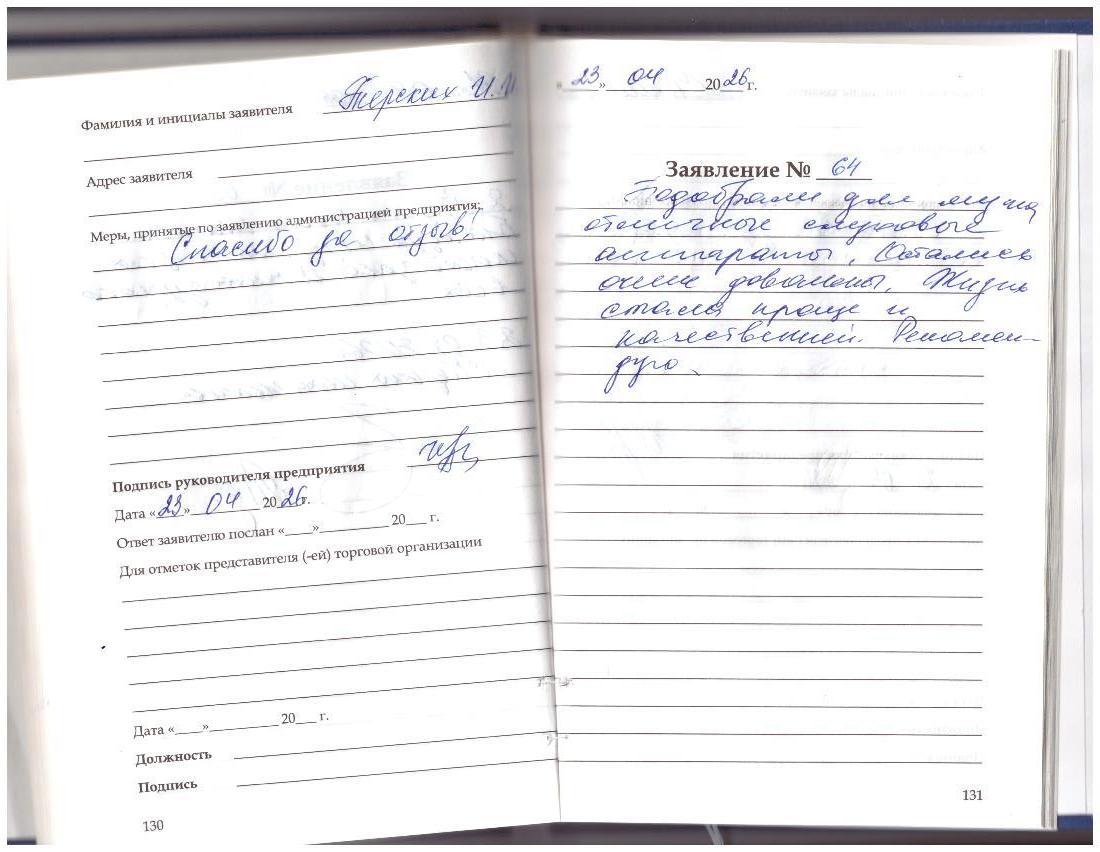 Фамилия и инициалы заявителя Терских И.И
Адрес заявителя
Меры, принятые по заявлению администрацией предприятия:
Спасибо за отзыв!
Подпись руководителя предприятия
Дата «23» 04 2026г.
Ответ заявителю послан «___»__________ 20___ г.
Для отметок представителя (-ей) торговой организации
Дата «___»__________ 20___ г.
Должность
Подпись
130
«23» 04 2026г.
Заявление № 64
Подобрали для мужа
отличные слуховые
аппараты. Остались
очень довольны. Жизнь
стала проще и
качественней. Рекомен-
дую.
131